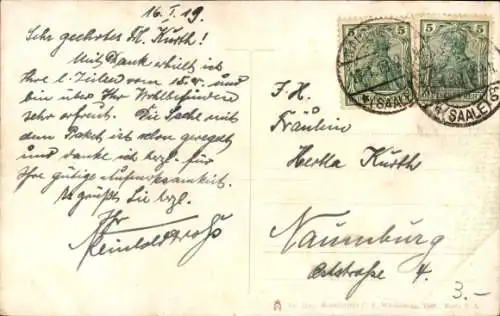 16. I. 19.
Sehr geehrtes Frl. Kurth!
Mit Dank erhielt ich
Ihre l. Zeilen vom 15. und
bin über Ihr Wohlbefinden
sehr erfreut. Die Sache mit
dem Paket ist schon geregelt
und danke ich hzgl. für
Ihre gütige Aufmerksamkeit.
Es grüßt Sie hzgl.
Ihr
Reinhold
5 5
(SAALE) (SAALE)
I. H.
Fräulein
Herta Kurth
Naumburg
Oststraße 4.
3.-